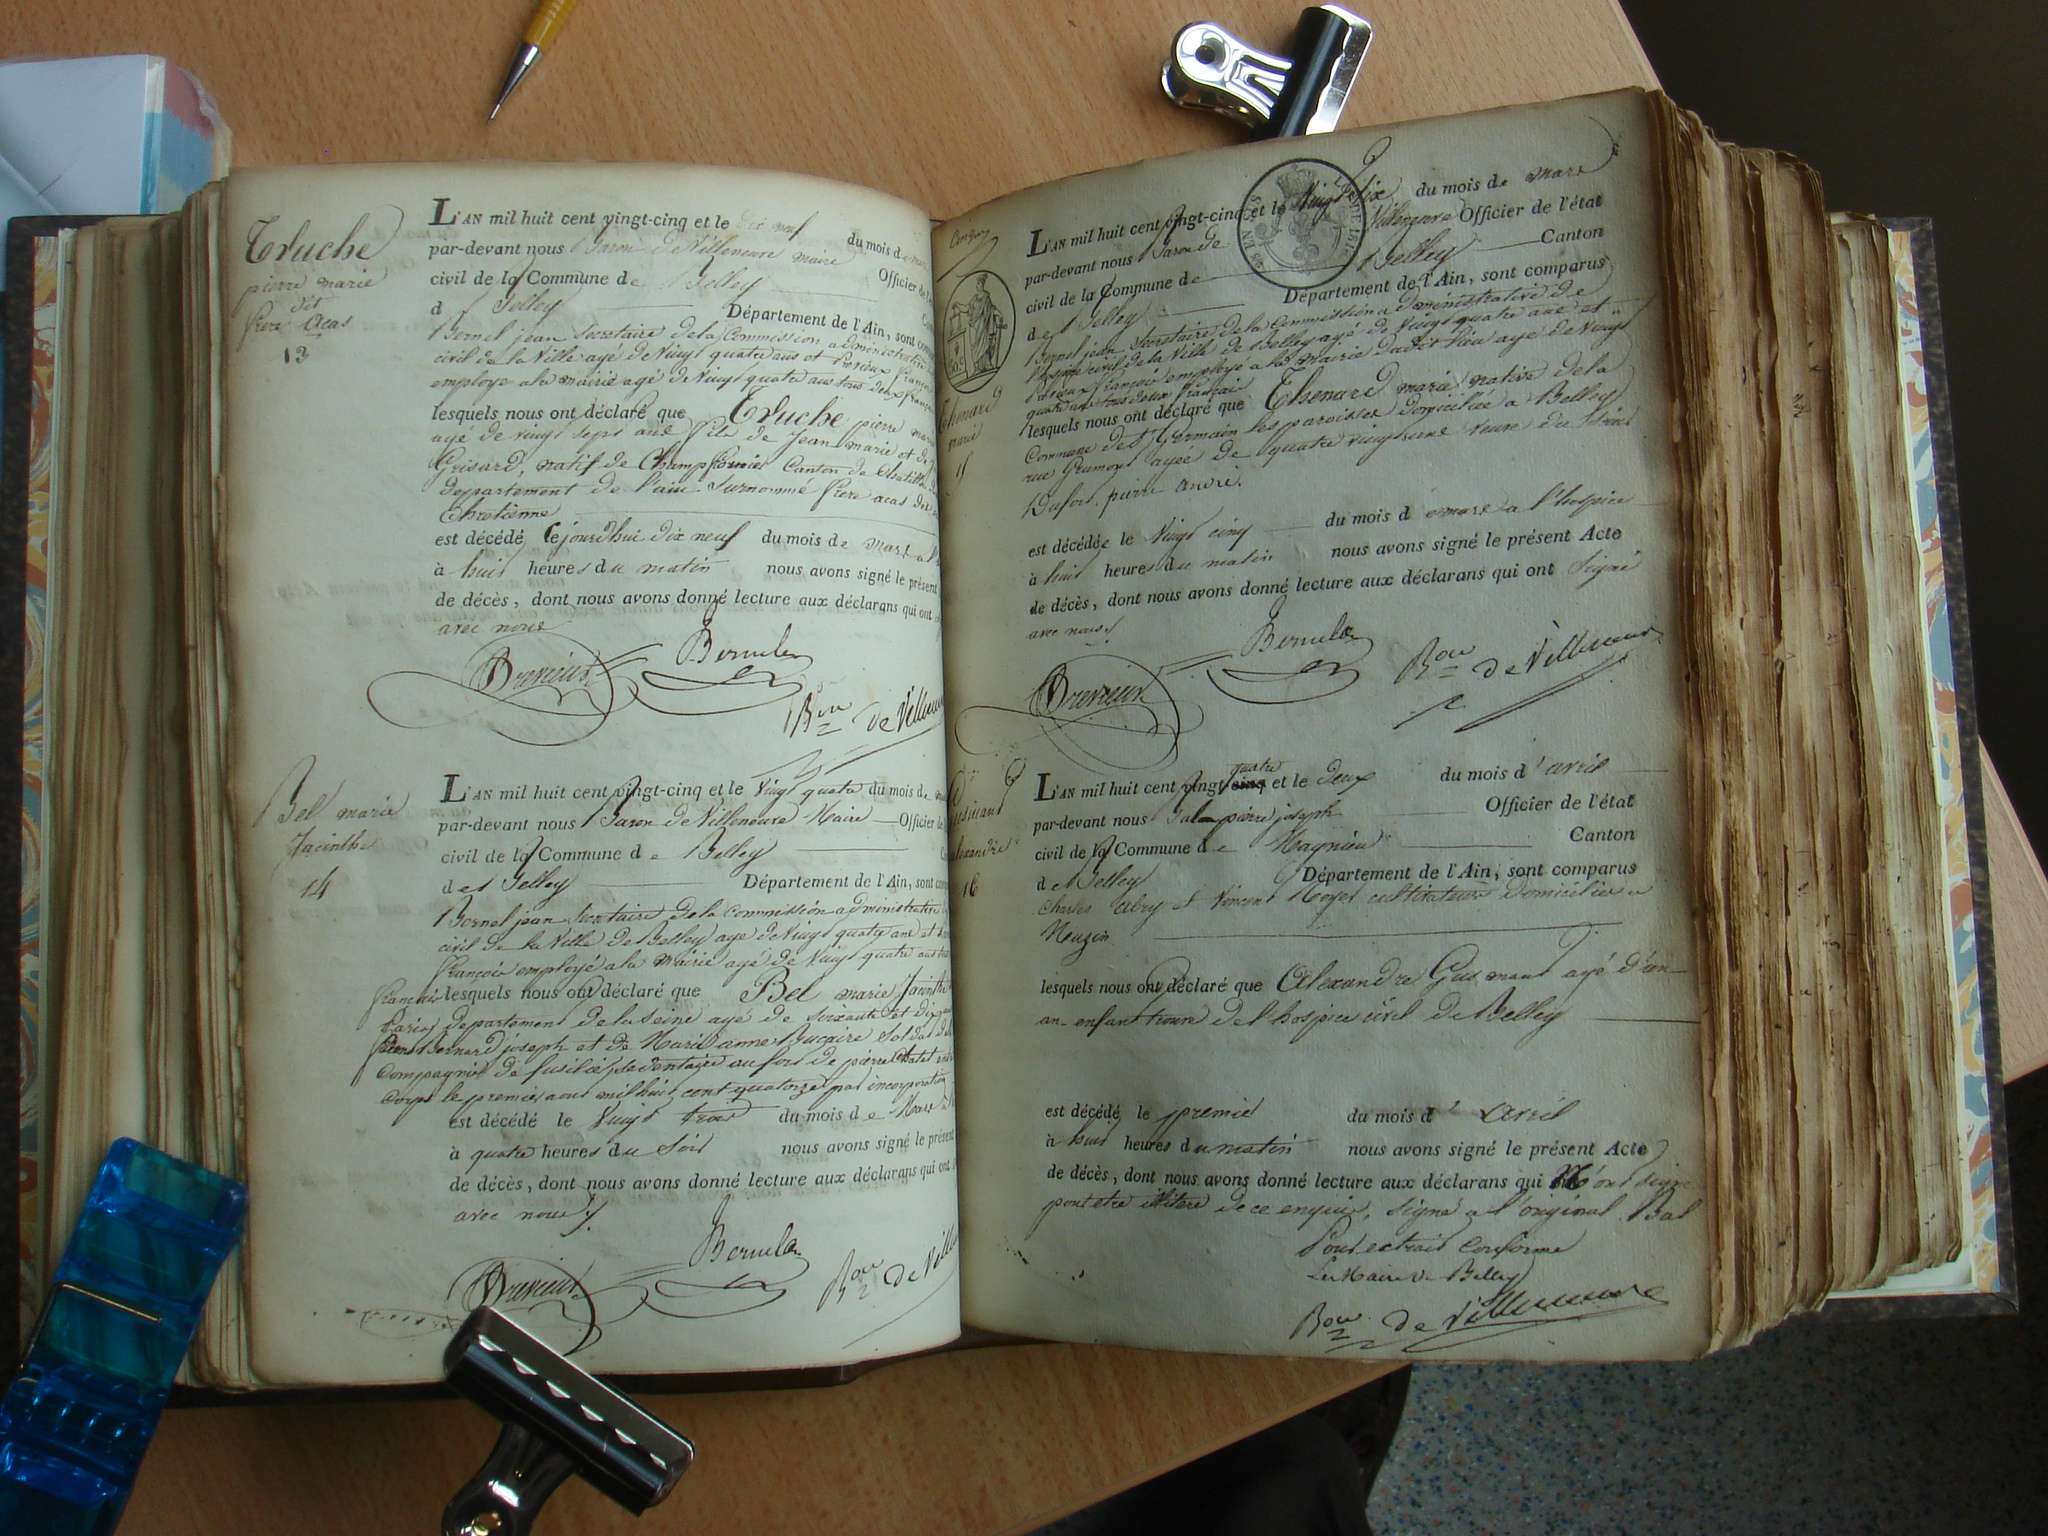 Truche
pierre marie
dit
frere Acas
13
L'AN mil huit cent vingt-cinq et le dix neuf du mois de
par-devant nous Baron de Villeneuve maire Officier de
civil de la Commune de Belley
d Belley Département de l'Ain, sont
Bornel jean Secretaire de la Commission administrative
civil de la Ville agé de Vingt quatre ans et Previeux françois
employé a la mairie agé de Vingt quatre ans tous deux
lesquels nous ont déclaré que Truche pierre marie
agé de vingt sept ans fils de Jean marie et de
Grisard, natif de Champfromier Canton de Chatillon
departement de l'ain Surnommé frere acas
Chretienne
est décédé Cejourdhui dix neuf du mois de mars
à huit heures du matin nous avons signé le présent
de décès, dont nous avons donné lecture aux déclarans qui ont
avec nous
Previeux
Bornel
Bon de Villeneuve
Bel marie
Jacinthe
14
L'AN mil huit cent vingt-cinq et le Vingt quatre du mois de
par-devant nous Baron de Villeneuve Maire Officier de
civil de la Commune de Belley
de Belley Département de l'Ain, sont
Bornel jean Secretaire de la Commission administrative
civil de la Ville de Belley agé de Vingt quatre ans et
françois employé a la Mairie agé de Vingt quatre ans
français lesquels nous ont déclaré que Bel marie Jacinthe
Paris departement de la Seine agé de Soixante et dix
Bernard joseph et de Marie anne Bucaire Soldat
Compagnie de fusiliers Sedentaire au fort de pierre Chatel
Corps le premier aout mil huit cent quatorze par incorporation
est décédé le Vingt trois du mois de Mars
à quatre heures du Soir nous avons signé le présent
de décès, dont nous avons donné lecture aux déclarans qui ont
avec nous
Previeux
Bornel
Bon de Vill
Thenard
marie
15
L'AN mil huit cent vingt-cinq et le Vingt six du mois de mars
par-devant nous Baron de Villeneuve Officier de l'état
civil de la Commune de Belley Canton
de Belley Département de l'Ain, sont comparus
Bornel jean Secretaire de la Commission administrative de
l'hospice civil de la Ville de Belley agé de Vingt quatre ans et
Previeux François employé a la mairie dudit lieu agé de Vingt
quatre ans tous deux français
lesquels nous ont déclaré que Thenard marie native de la
Commune de St Germain les paroisses domiciliée a Belley
rue Grammont agée de quatre vingt une Veuve du
Dufort pierre andré.
est décédée le Vingt cinq du mois d mars a l'hospice
à huit heures du matin nous avons signé le présent Acte
de décès, dont nous avons donné lecture aux déclarans qui ont Signé
avec nous
Previeux
Bornel
Bon de Villeneuve
alexandre
16
L'AN mil huit cent vingt-cinq quatre et le deux du mois d'avril
par-devant nous Bal pierre joseph Officier de l'état
civil de la Commune de Magnieu Canton
de Belley Département de l'Ain, sont comparus
Charles Abry et Vincent Royet cultivateurs Domiciliés a
lesquels nous ont déclaré que Alexandre Gusmant agé d'un
an enfant trouvé de l'hospice civil de Belley
est décédé le premier du mois d' Avril
à huit heures du matin nous avons signé le présent Acte
de décès, dont nous avons donné lecture aux déclarans qui n'ont Signé
pour etre illitere de ce enquis, Signé a l'original Bal
Pour extrait Conforme
Le Maire de Belley
Bon de Villeneuve